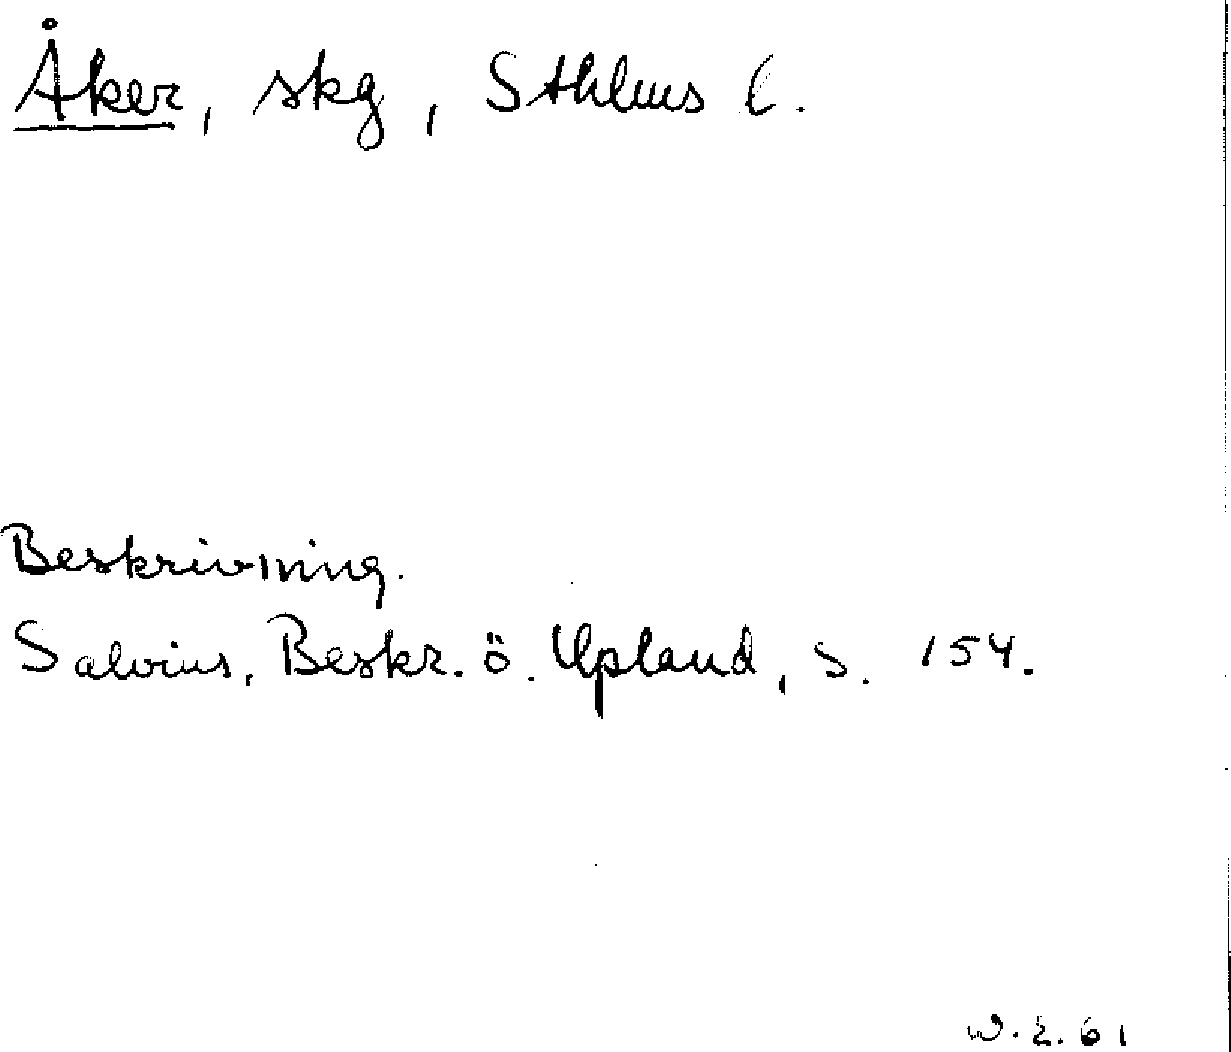 Åker, skg, Sthlms l.
Beskrivning.
Salvius, Beskr. ö. Upland, s. 154.
W.E. 61